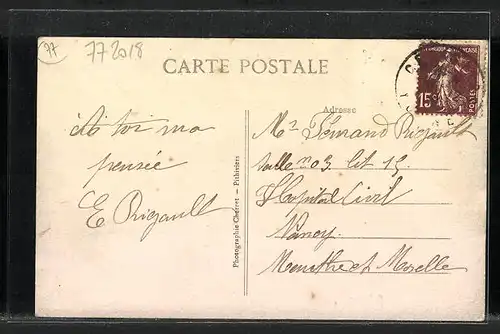 77
77 2018
CARTE POSTALE
RÉPUBLIQUE FRANÇAISE
15c
POSTES
Adresse
à toi ma
pensée
E Rigault
Photographie Cherret - Pithiviers
Mr Fernand Rigault
Salle no 3 lit 15
Hôpital Civil
Nancy
Meurthe et Moselle